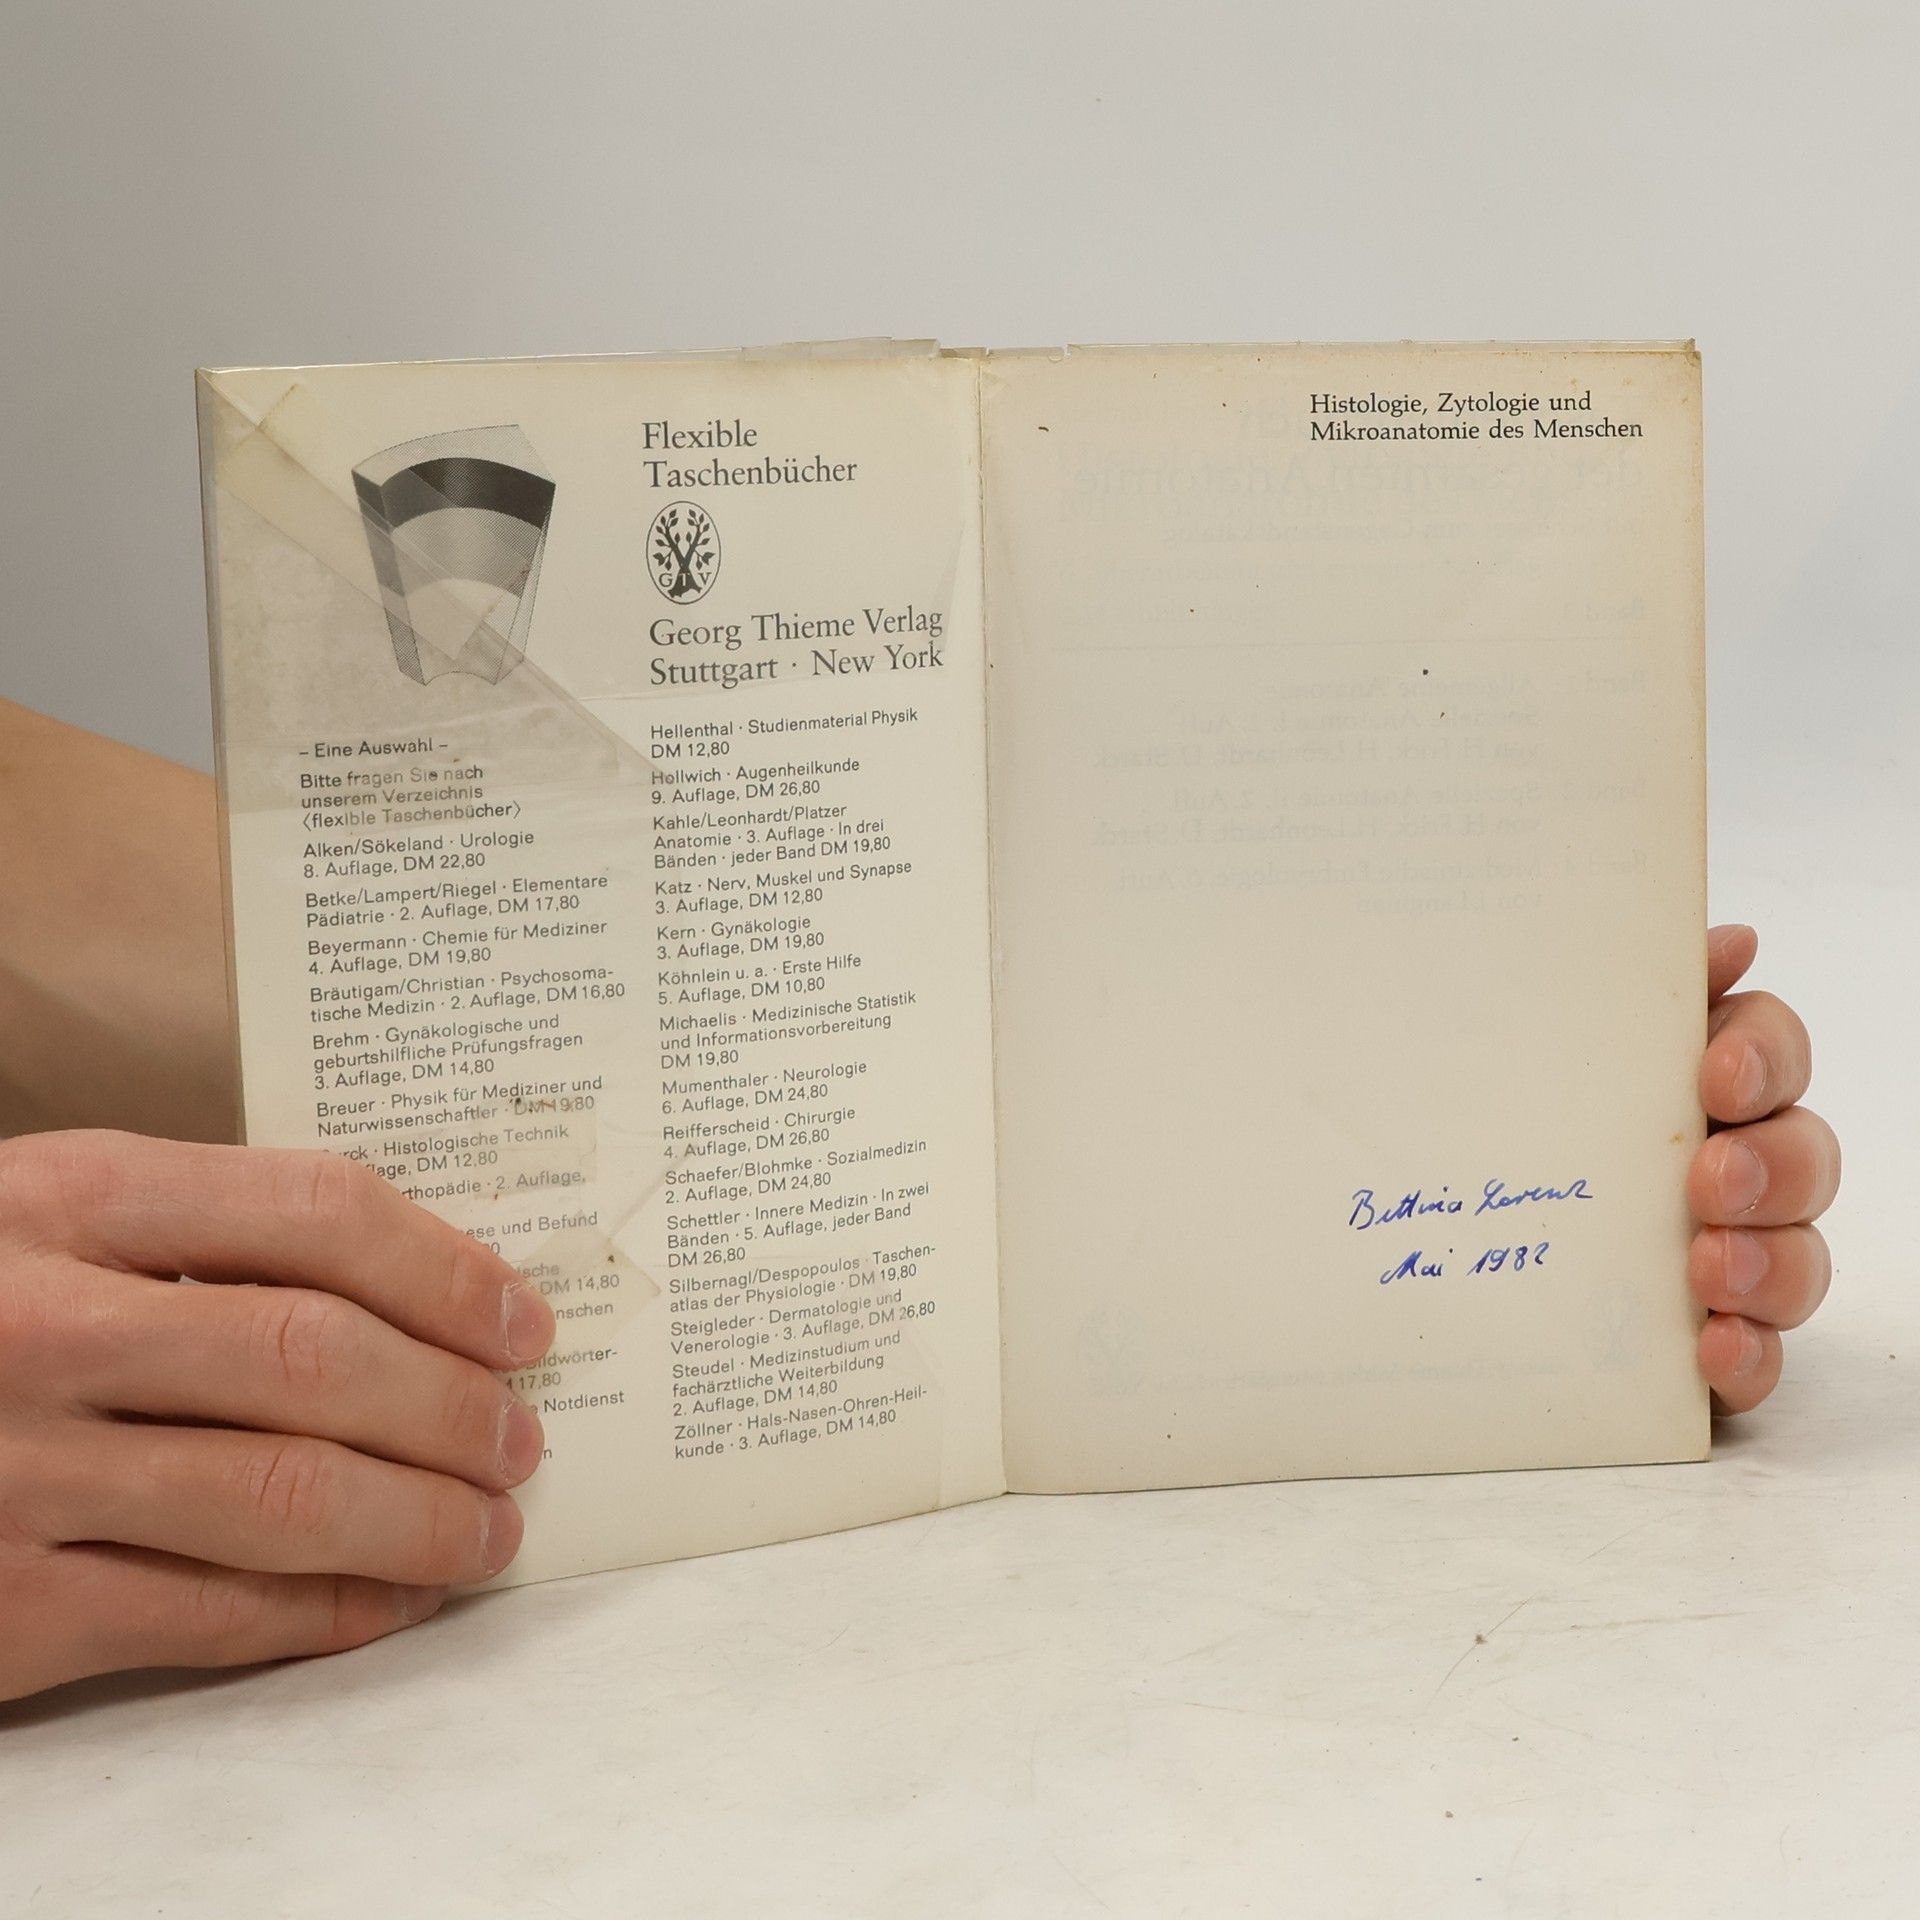 Flexible
Taschenbücher
G T V
Georg Thieme Verlag
Stuttgart · New York
– Eine Auswahl –
Bitte fragen Sie nach
unserem Verzeichnis
⟨flexible Taschenbücher⟩
Alken/Sökeland · Urologie
8. Auflage, DM 22,80
Betke/Lampert/Riegel · Elementare
Pädiatrie · 2. Auflage, DM 17,80
Beyermann · Chemie für Mediziner
4. Auflage, DM 19,80
Bräutigam/Christian · Psychosoma-
tische Medizin · 2. Auflage, DM 16,80
Brehm · Gynäkologische und
geburtshilfliche Prüfungsfragen
3. Auflage, DM 14,80
Breuer · Physik für Mediziner und
Naturwissenschaftler · DM 19,80
· Histologische Technik
DM 12,80
· 2. Auflage,
und Befund
DM 14,80
17,80
Notdienst
Hellenthal · Studienmaterial Physik
DM 12,80
Hollwich · Augenheilkunde
9. Auflage, DM 26,80
Kahle/Leonhardt/Platzer
Anatomie · 3. Auflage · In drei
Bänden · jeder Band DM 19,80
Katz · Nerv, Muskel und Synapse
3. Auflage, DM 12,80
Kern · Gynäkologie
3. Auflage, DM 19,80
Köhnlein u. a. · Erste Hilfe
5. Auflage, DM 10,80
Michaelis · Medizinische Statistik
und Informationsvorbereitung
DM 19,80
Mumenthaler · Neurologie
6. Auflage, DM 24,80
Reifferscheid · Chirurgie
4. Auflage, DM 26,80
Schaefer/Blohmke · Sozialmedizin
2. Auflage, DM 24,80
Schettler · Innere Medizin · In zwei
Bänden · 5. Auflage, jeder Band
DM 26,80
Silbernagl/Despopoulos · Taschen-
atlas der Physiologie · DM 19,80
Steigleder · Dermatologie und
Venerologie · 3. Auflage, DM 26,80
Steudel · Medizinstudium und
fachärztliche Weiterbildung
2. Auflage, DM 14,80
Zöllner · Hals-Nasen-Ohren-Heil-
kunde · 3. Auflage, DM 14,80
Histologie, Zytologie und
Mikroanatomie des Menschen
Bettina Lorenz
Mai 1982